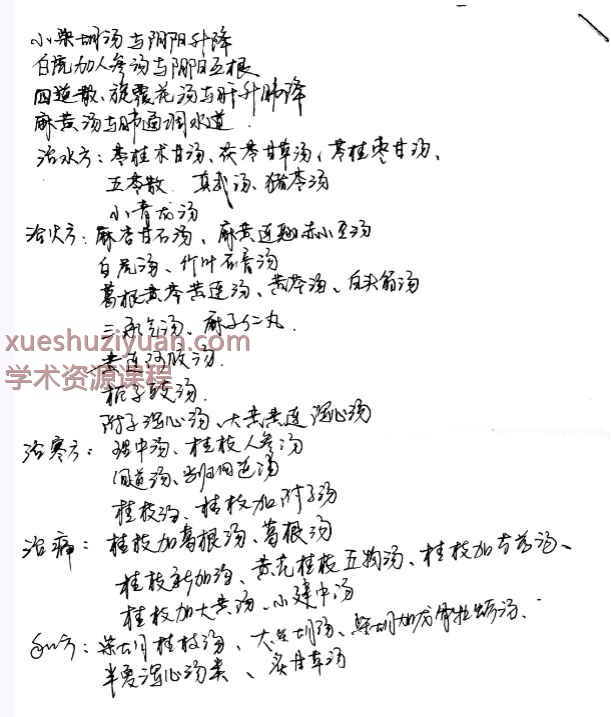 小柴胡汤与阴阳升降
白虎加人参汤与阴阳互根
四逆散、旋覆花汤与肝升肺降
麻黄汤与肺通调水道
治水方：苓桂术甘汤、茯苓甘草汤、苓桂枣甘汤、
五苓散、真武汤、猪苓汤
小青龙汤
治火方：麻杏甘石汤、麻黄连翘赤小豆汤
白虎汤、竹叶石膏汤
葛根黄芩黄连汤、黄芩汤、白头翁汤
三承气汤、麻子仁丸.
xueshuziyuan.com
黄连阿胶汤.
学术资源课程
栀子豉汤.
附子泻心汤、大黄黄连泻心汤
治寒方：理中汤、桂枝人参汤
四逆汤、当归四逆汤
桂枝汤、桂枝加附子汤
治痹：桂枝加葛根汤、葛根汤
桂枝新加汤、黄芪桂枝五物汤、桂枝加芍药汤、
桂枝加大黄汤、小建中汤
和方：柴胡桂枝汤、大柴胡汤、柴胡加龙骨牡蛎汤、
半夏泻心汤类、炙甘草汤